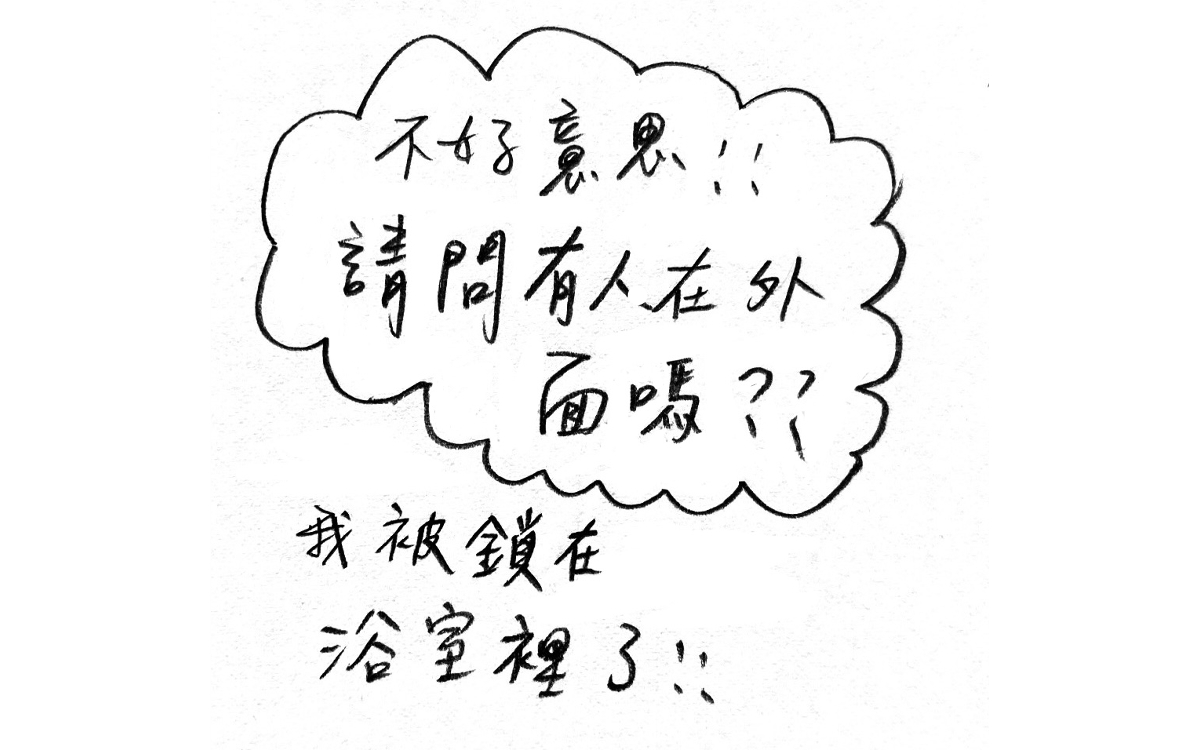 不好意思!!
請問有人在外
面嗎??
我被鎖在
浴室裡了!!